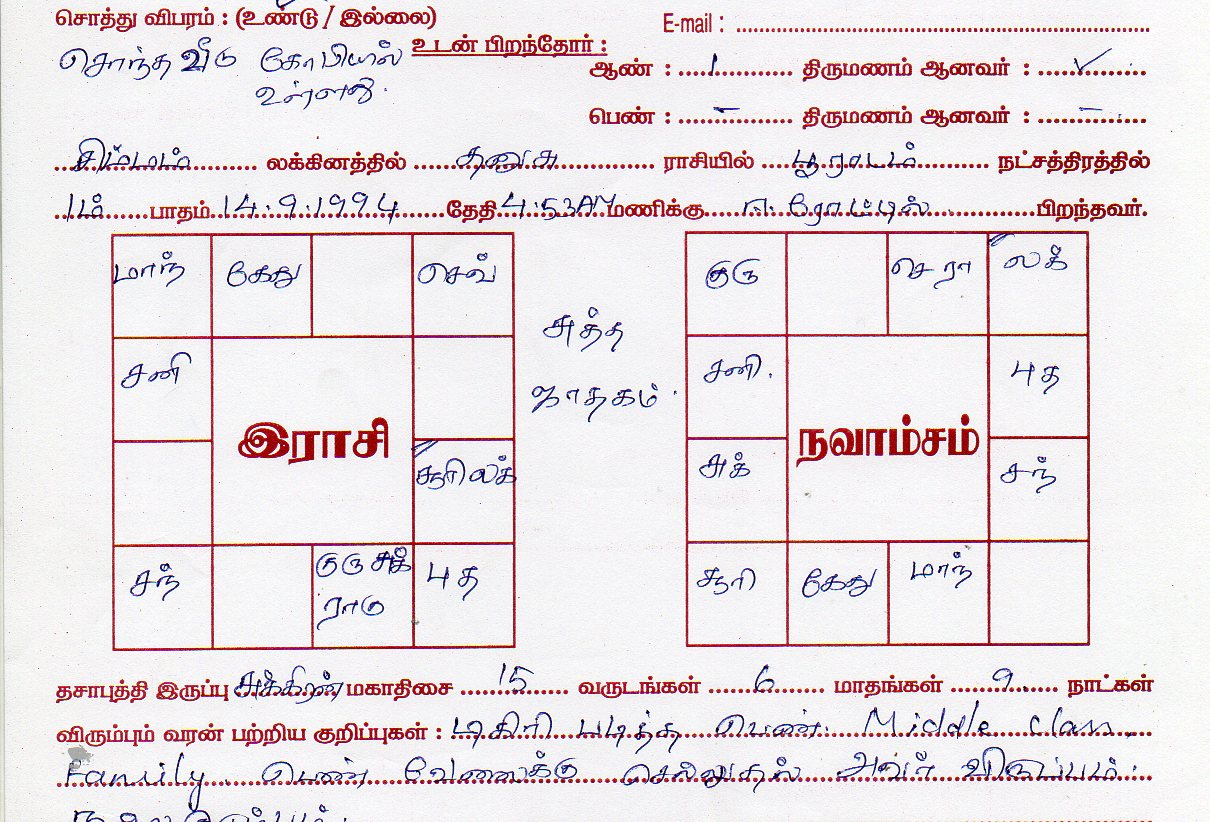 சொத்து விபரம் : (உண்டு / இல்லை) E-mail : ........
சொந்த வீடு கோபியில் உடன் பிறந்தோர் :
உள்ளது. ஆண் : ....1.... திருமணம் ஆனவர் : ....✓....
பெண் : ....–.... திருமணம் ஆனவர் : ....–....
சிம்மம் லக்கினத்தில் தனுசு ராசியில் பூராடம் நட்சத்திரத்தில்
1ம் பாதம் 14.9.1994 தேதி 4.53AM மணிக்கு ஈரோட்டில் பிறந்தவர்.
மாந் கேது செவ்
சனி
இராசி
சூரி லக்
சந் குரு சுக் ராகு புத
சுத்த
ஜாதகம்.
குரு செ ரா லக்
சனி. புத
நவாம்சம்
சுக் சந்
சூரி கேது மாந்
தசாபுத்தி இருப்பு சுக்கிரன் மகாதிசை 15 வருடங்கள் 6 மாதங்கள் 9 நாட்கள்
விரும்பும் வரன் பற்றிய குறிப்புகள் : டிகிரி படித்த பெண். Middle class.
Family. பெண் வேலைக்கு செல்லுதல் அவர் விருப்பம்.